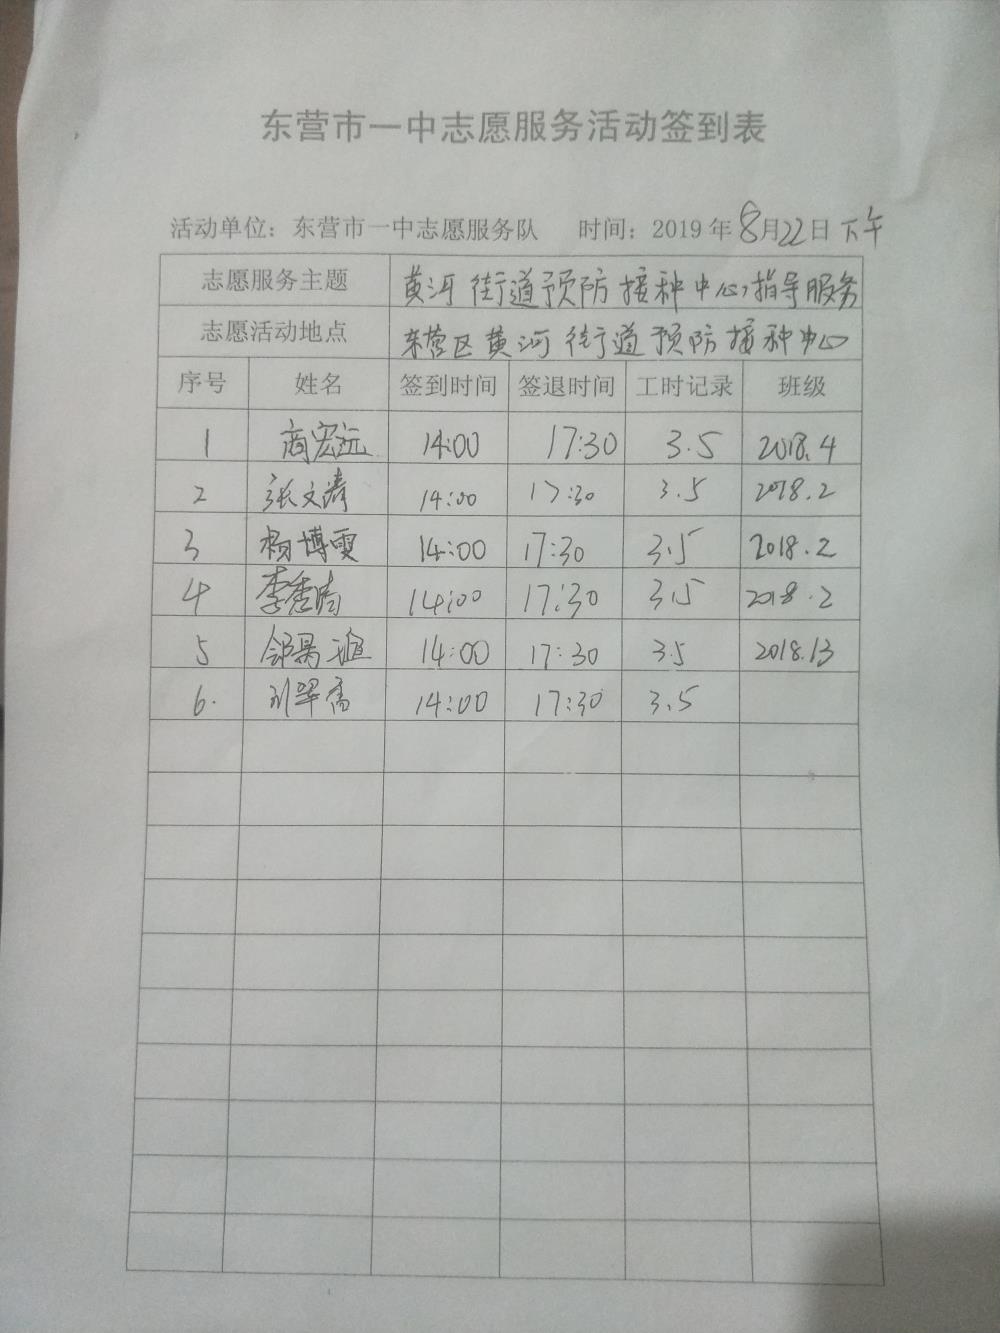 东营市一中志愿服务活动签到表
活动单位：东营市一中志愿服务队 时间：2019年8月22日下午
志愿服务主题 黄河街道预防接种中心指导服务
志愿活动地点 东营区黄河街道预防接种中心
序号 姓名 签到时间 签退时间 工时记录 班级
1 商宏远 14:00 17:30 3.5 2018.4
2 张文涛 14:00 17:30 3.5 2018.2
3 杨博雯 14:00 17:30 3.5 2018.2
4 李秀清 14:00 17:30 3.5 2018.2
5 14:00 17:30 3.5 2018.13
6. 14:00 17:30 3.5